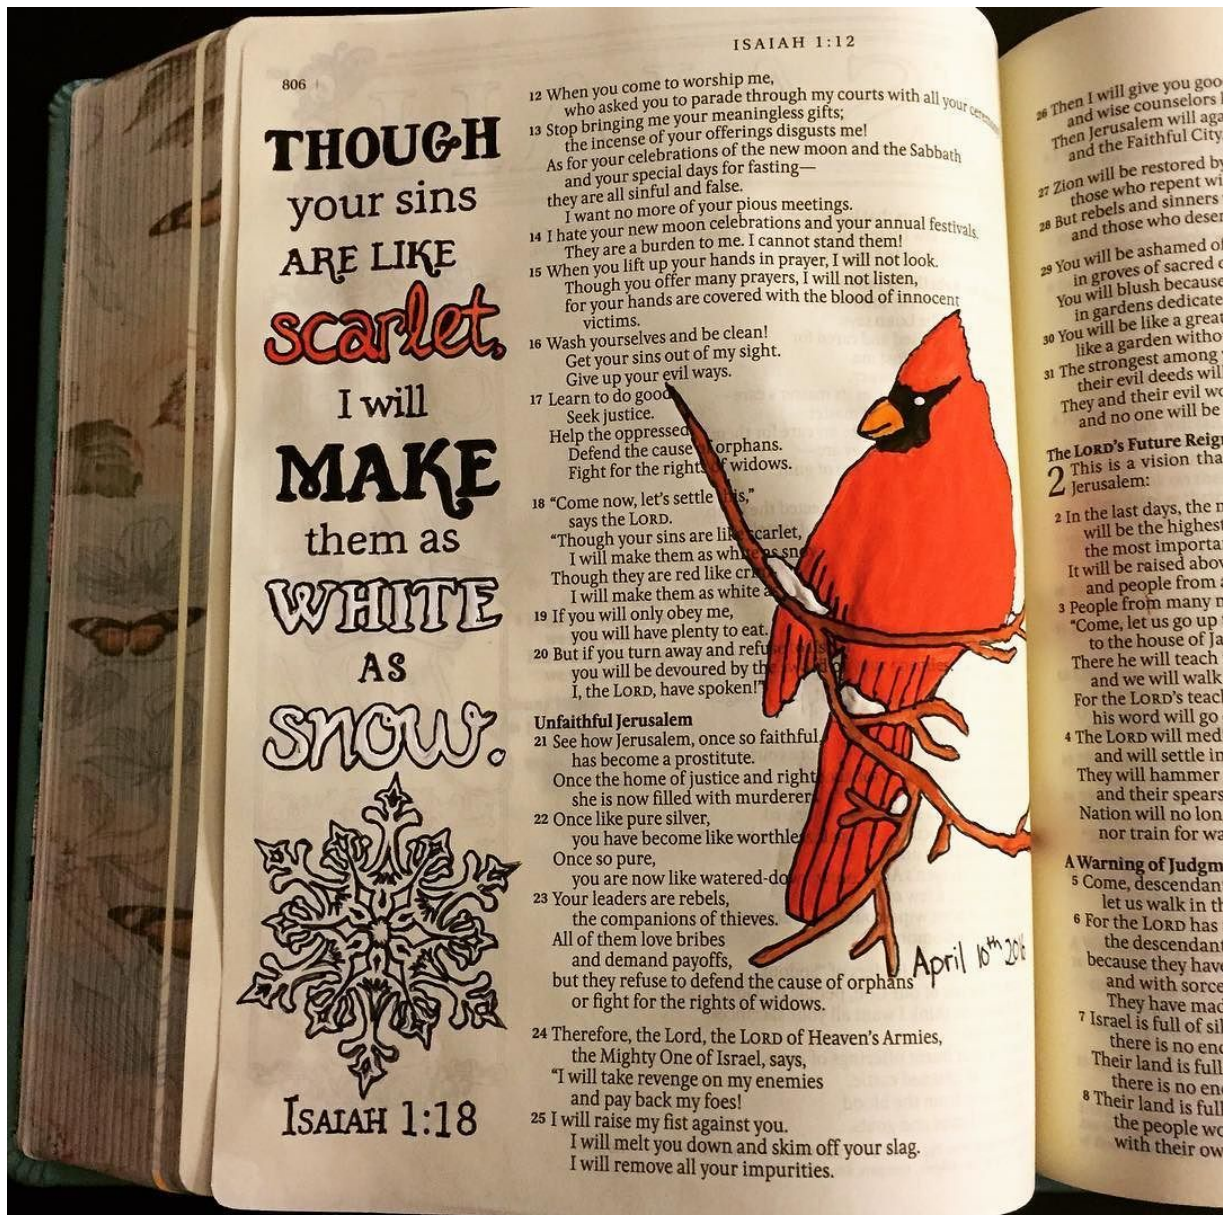 ISAIAH 1:12
806
THOUGH
your sins
ARE LIKE
scarlet,
I will
MAKE
them as
WHITE
AS
snow.
ISAIAH 1:18
12 When you come to worship me,
who asked you to parade through my courts with all your
13 Stop bringing me your meaningless gifts;
the incense of your offerings disgusts me!
As for your celebrations of the new moon and the Sabbath
and your special days for fasting—
they are all sinful and false.
I want no more of your pious meetings.
14 I hate your new moon celebrations and your annual festivals.
They are a burden to me. I cannot stand them!
15 When you lift up your hands in prayer, I will not look.
Though you offer many prayers, I will not listen,
for your hands are covered with the blood of innocent
victims.
16 Wash yourselves and be clean!
Get your sins out of my sight.
Give up your evil ways.
17 Learn to do good
Seek justice.
Help the oppressed
Defend the cause of orphans.
Fight for the rights of widows.
18 “Come now, let’s settle this,”
says the LORD.
“Though your sins are like scarlet,
I will make them as white as sno
Though they are red like cri
I will make them as white a
19 If you will only obey me,
you will have plenty to eat.
20 But if you turn away and refu
you will be devoured by the
I, the LORD, have spoken!”
Unfaithful Jerusalem
21 See how Jerusalem, once so faithful,
has become a prostitute.
Once the home of justice and right
she is now filled with murderer
22 Once like pure silver,
you have become like worthle
Once so pure,
you are now like watered-do
23 Your leaders are rebels,
the companions of thieves.
All of them love bribes
and demand payoffs,
but they refuse to defend the cause of orphans
or fight for the rights of widows.
24 Therefore, the Lord, the LORD of Heaven’s Armies,
the Mighty One of Israel, says,
“I will take revenge on my enemies
and pay back my foes!
25 I will raise my fist against you.
I will melt you down and skim off your slag.
I will remove all your impurities.
April 10th 201
26 Then I will give you goo
and wise counselors
Then Jerusalem will aga
and the Faithful City.
27 Zion will be restored by
those who repent wi
28 But rebels and sinners
and those who deser
29 You will be ashamed of
in groves of sacred
You will blush because
in gardens dedicate
30 You will be like a great
like a garden witho
31 The strongest among
their evil deeds will
They and their evil wo
and no one will be
The LORD’s Future Reign
2 This is a vision tha
Jerusalem:
2 In the last days, the m
will be the highest
the most importa
It will be raised abov
and people from a
3 People from many n
“Come, let us go up
to the house of Ja
There he will teach
and we will walk
For the LORD’s teach
his word will go
4 The LORD will medi
and will settle in
They will hammer
and their spears
Nation will no lon
nor train for wa
A Warning of Judgm
5 Come, descendant
let us walk in th
6 For the LORD has
the descendant
because they have
and with sorce
They have mad
7 Israel is full of sil
there is no end
Their land is full
there is no end
8 Their land is full
the people wo
with their ow